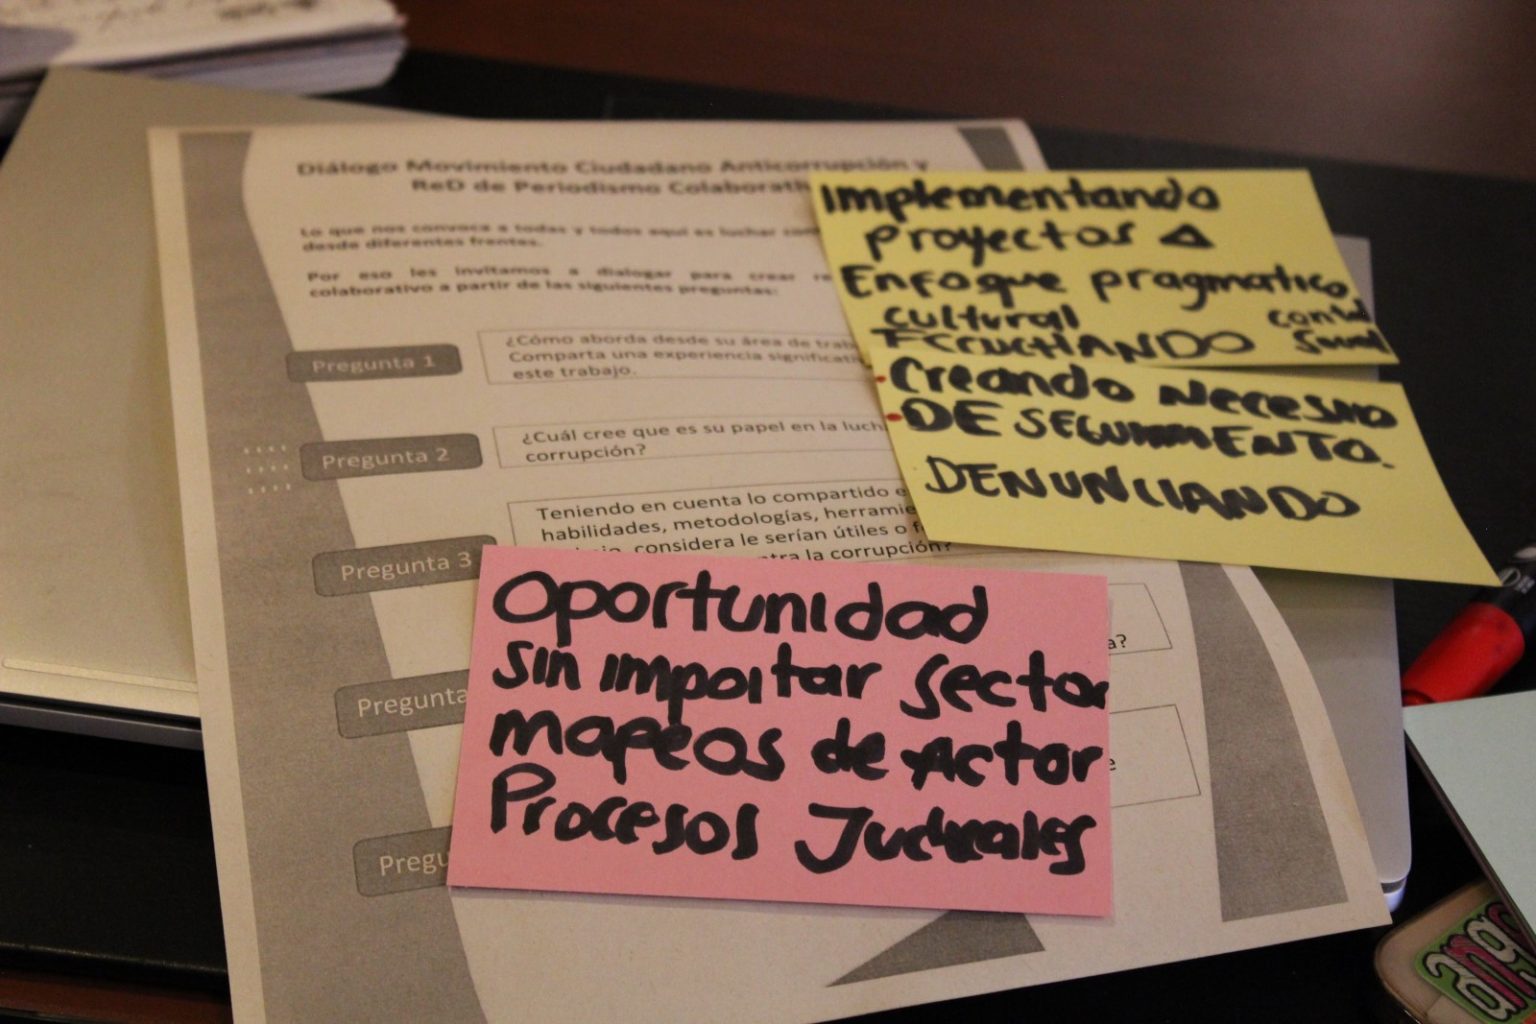 Diálogo Movimiento Ciudadano Anticorrupción y
ReD de Periodismo Colaborati
Lo que nos convoca a todas y todos aquí es luchar
desde diferentes frentes.
Por eso les invitamos a dialogar para crear
colaborativo a partir de las siguientes preguntas:
Pregunta 1
¿Cómo aborda desde su área de trab
Comparta una experiencia significati
este trabajo.
Pregunta 2
¿Cuál cree que es su papel en la luch
corrupción?
Pregunta 3
Teniendo en cuenta lo compartido e
habilidades, metodologías, herramie
considera le serían útiles o f
ntra la corrupción?
Pregunta
a?
Pregu
e
Implementando
proyectos Δ
Enfoque pragmatico
cultural
ESCUCHANDO
Creando necesid
DE SEGUIMIENTO.
DENUNCIANDO
Oportunidad
sin importar sector
mapeos de Actor
Procesos Judiciales